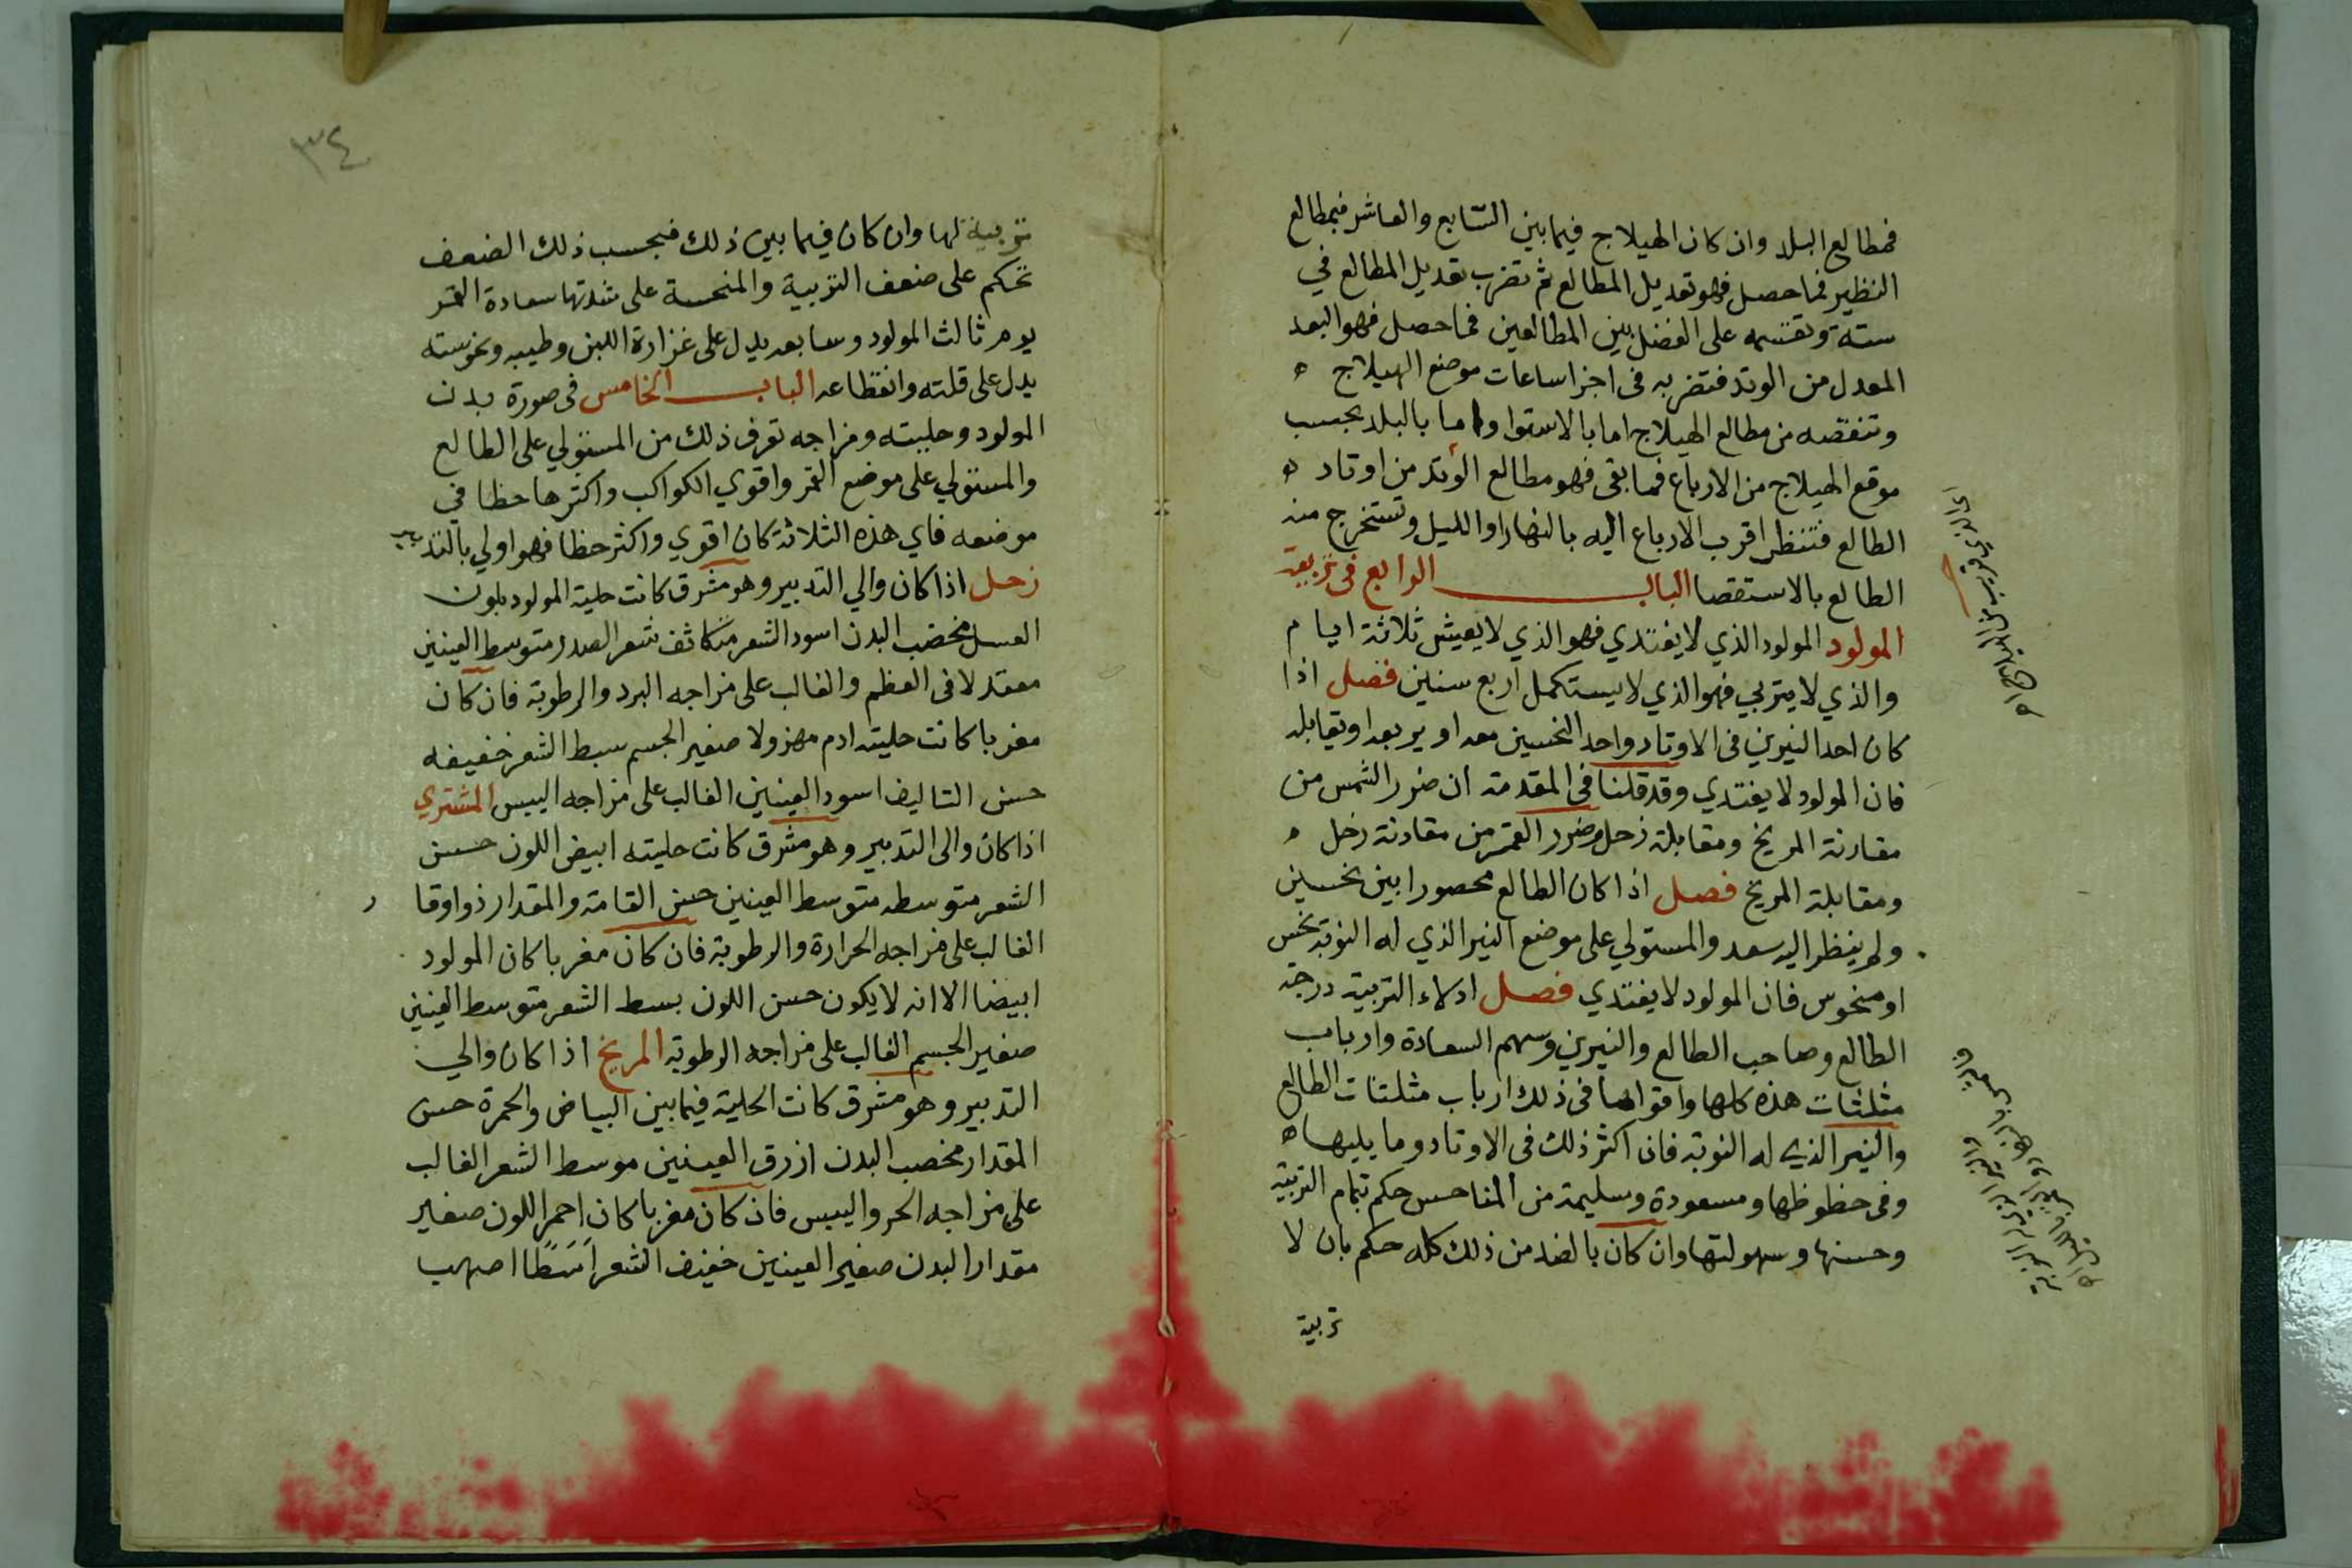 فمطالع البلد وان كان الهيلاج فيما بين السابع والعاشر فبمطالع
النظير فما حصل فهو تعديل المطالع ثم تضرب تعديل المطالع في
ستة وتقسمه على الفضل بين المطالعين فما حصل فهو البعد
المعدل من الوتد فتضربه فى اجزا ساعات موضع الهيلاج ه
وتنقصه من مطالع الهيلاج اما بالاستوا واما بالبلد بحسب
موقع الهيلاج من الارباع فما بقى فهو مطالع الوتد من اوتاد ه
الطالع فتنظر اقرب الارباع اليه بالنهار او الليل وتستخرج منه
الطالع بالاستقصا الباب الرابع فى تربية
المولود المولود الذي لا يغتدي فهو الذي لا يعيش ثلاثة ايام
والذي لا يتربي فهو الذي لا يستكمل اربع سنين فصل اذا
كان احد النيرين فى الاوتاد واحد النحسين معه او يربعه او يقابله
فان المولود لا يغتدي وقد قلنا فى المقدمة ان ضرر الشمس من
مقارنة المريخ ومقابلة زحل وضرر القمر من مقارنة زحل ه
ومقابلة المريخ فصل اذا كان الطالع محصورا بين نحسين
ولم ينظر اليه سعد والمستولي على موضع النير الذي له النوبة نحس
او منحوس فان المولود لا يغتدي فصل ادلاء التربية درجة
الطالع وصاحب الطالع والنيرين وسهم السعادة وارباب
مثلثات هذه كلها واقواها فى ذلك ارباب مثلثات الطالع
والنير الذي له النوبة فان اكثر ذلك فى الاوتاد وما يليها ه
وفى حظوظها ومسعودة وسليمة من المناحس حكم بتمام التربية
وحسنها وسهولتها وان كان بالضد من ذلك كله حكم بان لا
تربية
٣٤
تربية لها وان كان فيما بين ذلك فبحسب ذلك الضعف
تحكم على ضعف التربية والمنحسة على شدتها سعادة القمر
يوم ثالث المولود وسابعه يدل على غزارة اللبن وطيبه ونحوسته
يدل على قلته وانقطاعه الباب الخامس فى صورة بدن
المولود وحليته ومزاجه تعرف ذلك من المستولي على الطالع
والمستولي على موضع القمر واقوي الكواكب واكثرها حظا في
موضعه فاي هذه الثلاثة كان اقوي واكثر حظا فهو اولي بالتدبير
زحل اذا كان والي التدبير وهو مشرق كانت حلية المولود بلون
العسل مخصب البدن اسود الشعر متكاثف شعر الصدر متوسط العينين
معتدلا فى العظم والغالب على مزاجه البرد والرطوبة فان كان
مغربا كانت حليته ادم مهزولا صغير الجسم سبط الشعر خفيفه
حسن التاليف اسود العينين الغالب على مزاجه اليبس المشتري
اذا كان والى التدبير وهو مشرق كانت حليته ابيض اللون حسن
الشعر متوسطه متوسط العينين حسن القامة والمقدار ذو اوقا ر
الغالب على مزاجه الحرارة والرطوبة فان كان مغربا كان المولود
ابيضا الا انه لا يكون حسن اللون بسط الشعر متوسط العينين
صغير الجسم الغالب على مزاجه الرطوبة المريخ اذا كان والي
التدبير وهو مشرق كانت الحلية فيما بين البياض والحمرة حسن
المقدار مخصب البدن ازرق العينين موسط الشعر الغالب
على مزاجه الحر واليبس فان كان مغربا كان احمر اللون صغير
مقدار البدن صغير العينين خفيف الشعر اصهب